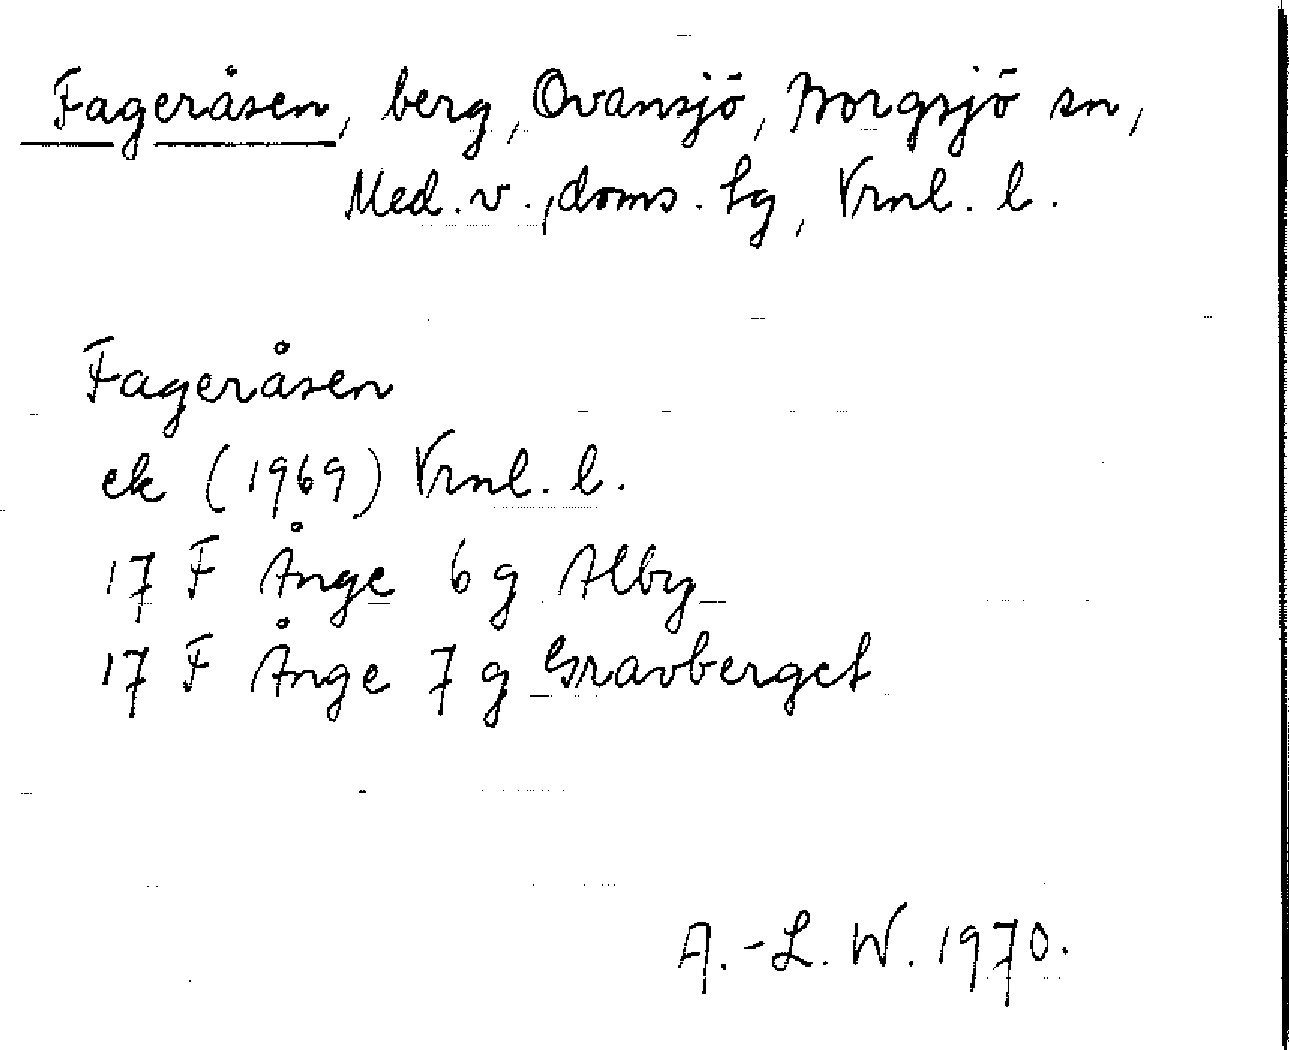 Fageråsen, berg, Ovansjö, Borgsjö sn,
Med. v., doms. hg, Vrnl. l.
Fageråsen
ek (1969) Vrnl. l.
17 F Ånge 6 g Alby
17 F Ånge 7 g Gravberget
A.-L. W. 1970.